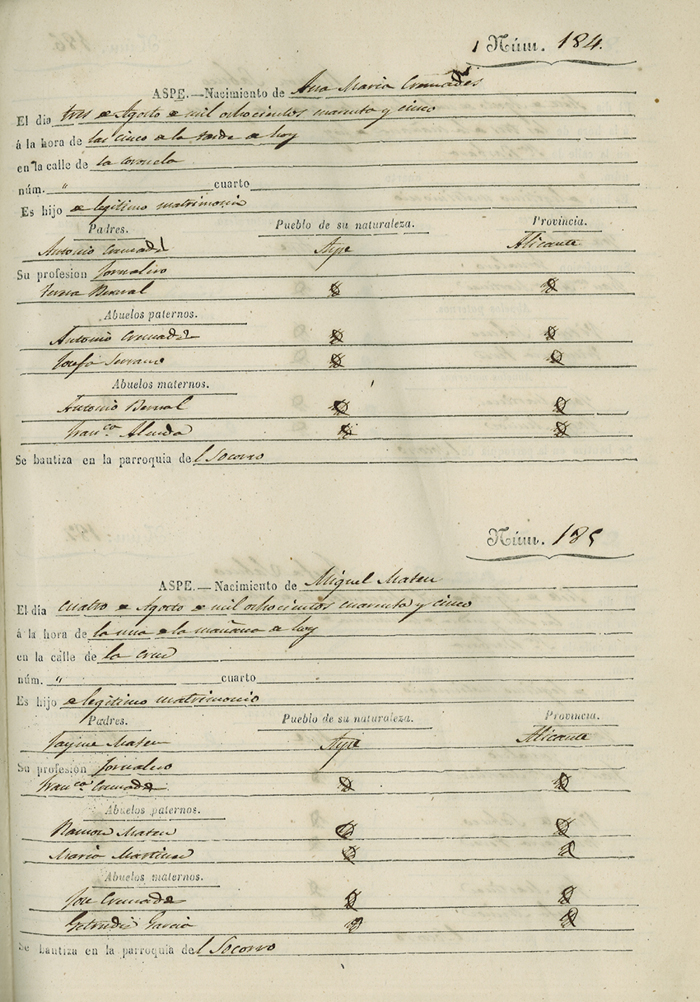 Núm. 184.
ASPE.—Nacimiento de Ana Maria Cremades
El dia tres de Agosto de mil ochocientos cuarenta y cinco
á la hora de las cinco de la tarde de hoy
en la calle de la Coronela
núm. " cuarto
Es hijo de legitimo matrimonio
Padres. Pueblo de su naturaleza. Provincia.
Antonio Cremades Aspe Alicante
Su profesion Jornalero
Teresa Bernal
Abuelos paternos.
Antonio Cremades
Josefa Serrano
Abuelos maternos.
Antonio Bernal
Franca. Almeda
Se bautiza en la parroquia del Socorro
Núm. 185
ASPE.—Nacimiento de Miguel Mateu
El dia cuatro de Agosto de mil ochocientos cuarenta y cinco
á la hora de la una de la mañana de hoy
en la calle de la Cruz
núm. " cuarto
Es hijo de legitimo matrimonio
Padres. Pueblo de su naturaleza. Provincia.
Jayme Mateu Aspe Alicante
Su profesion Jornalero
Franca Cremades
Abuelos paternos.
Ramon Mateu
Maria Martinez
Abuelos maternos.
Jose Cremades
Getrudis Garcia
Se bautiza en la parroquia del Socorro